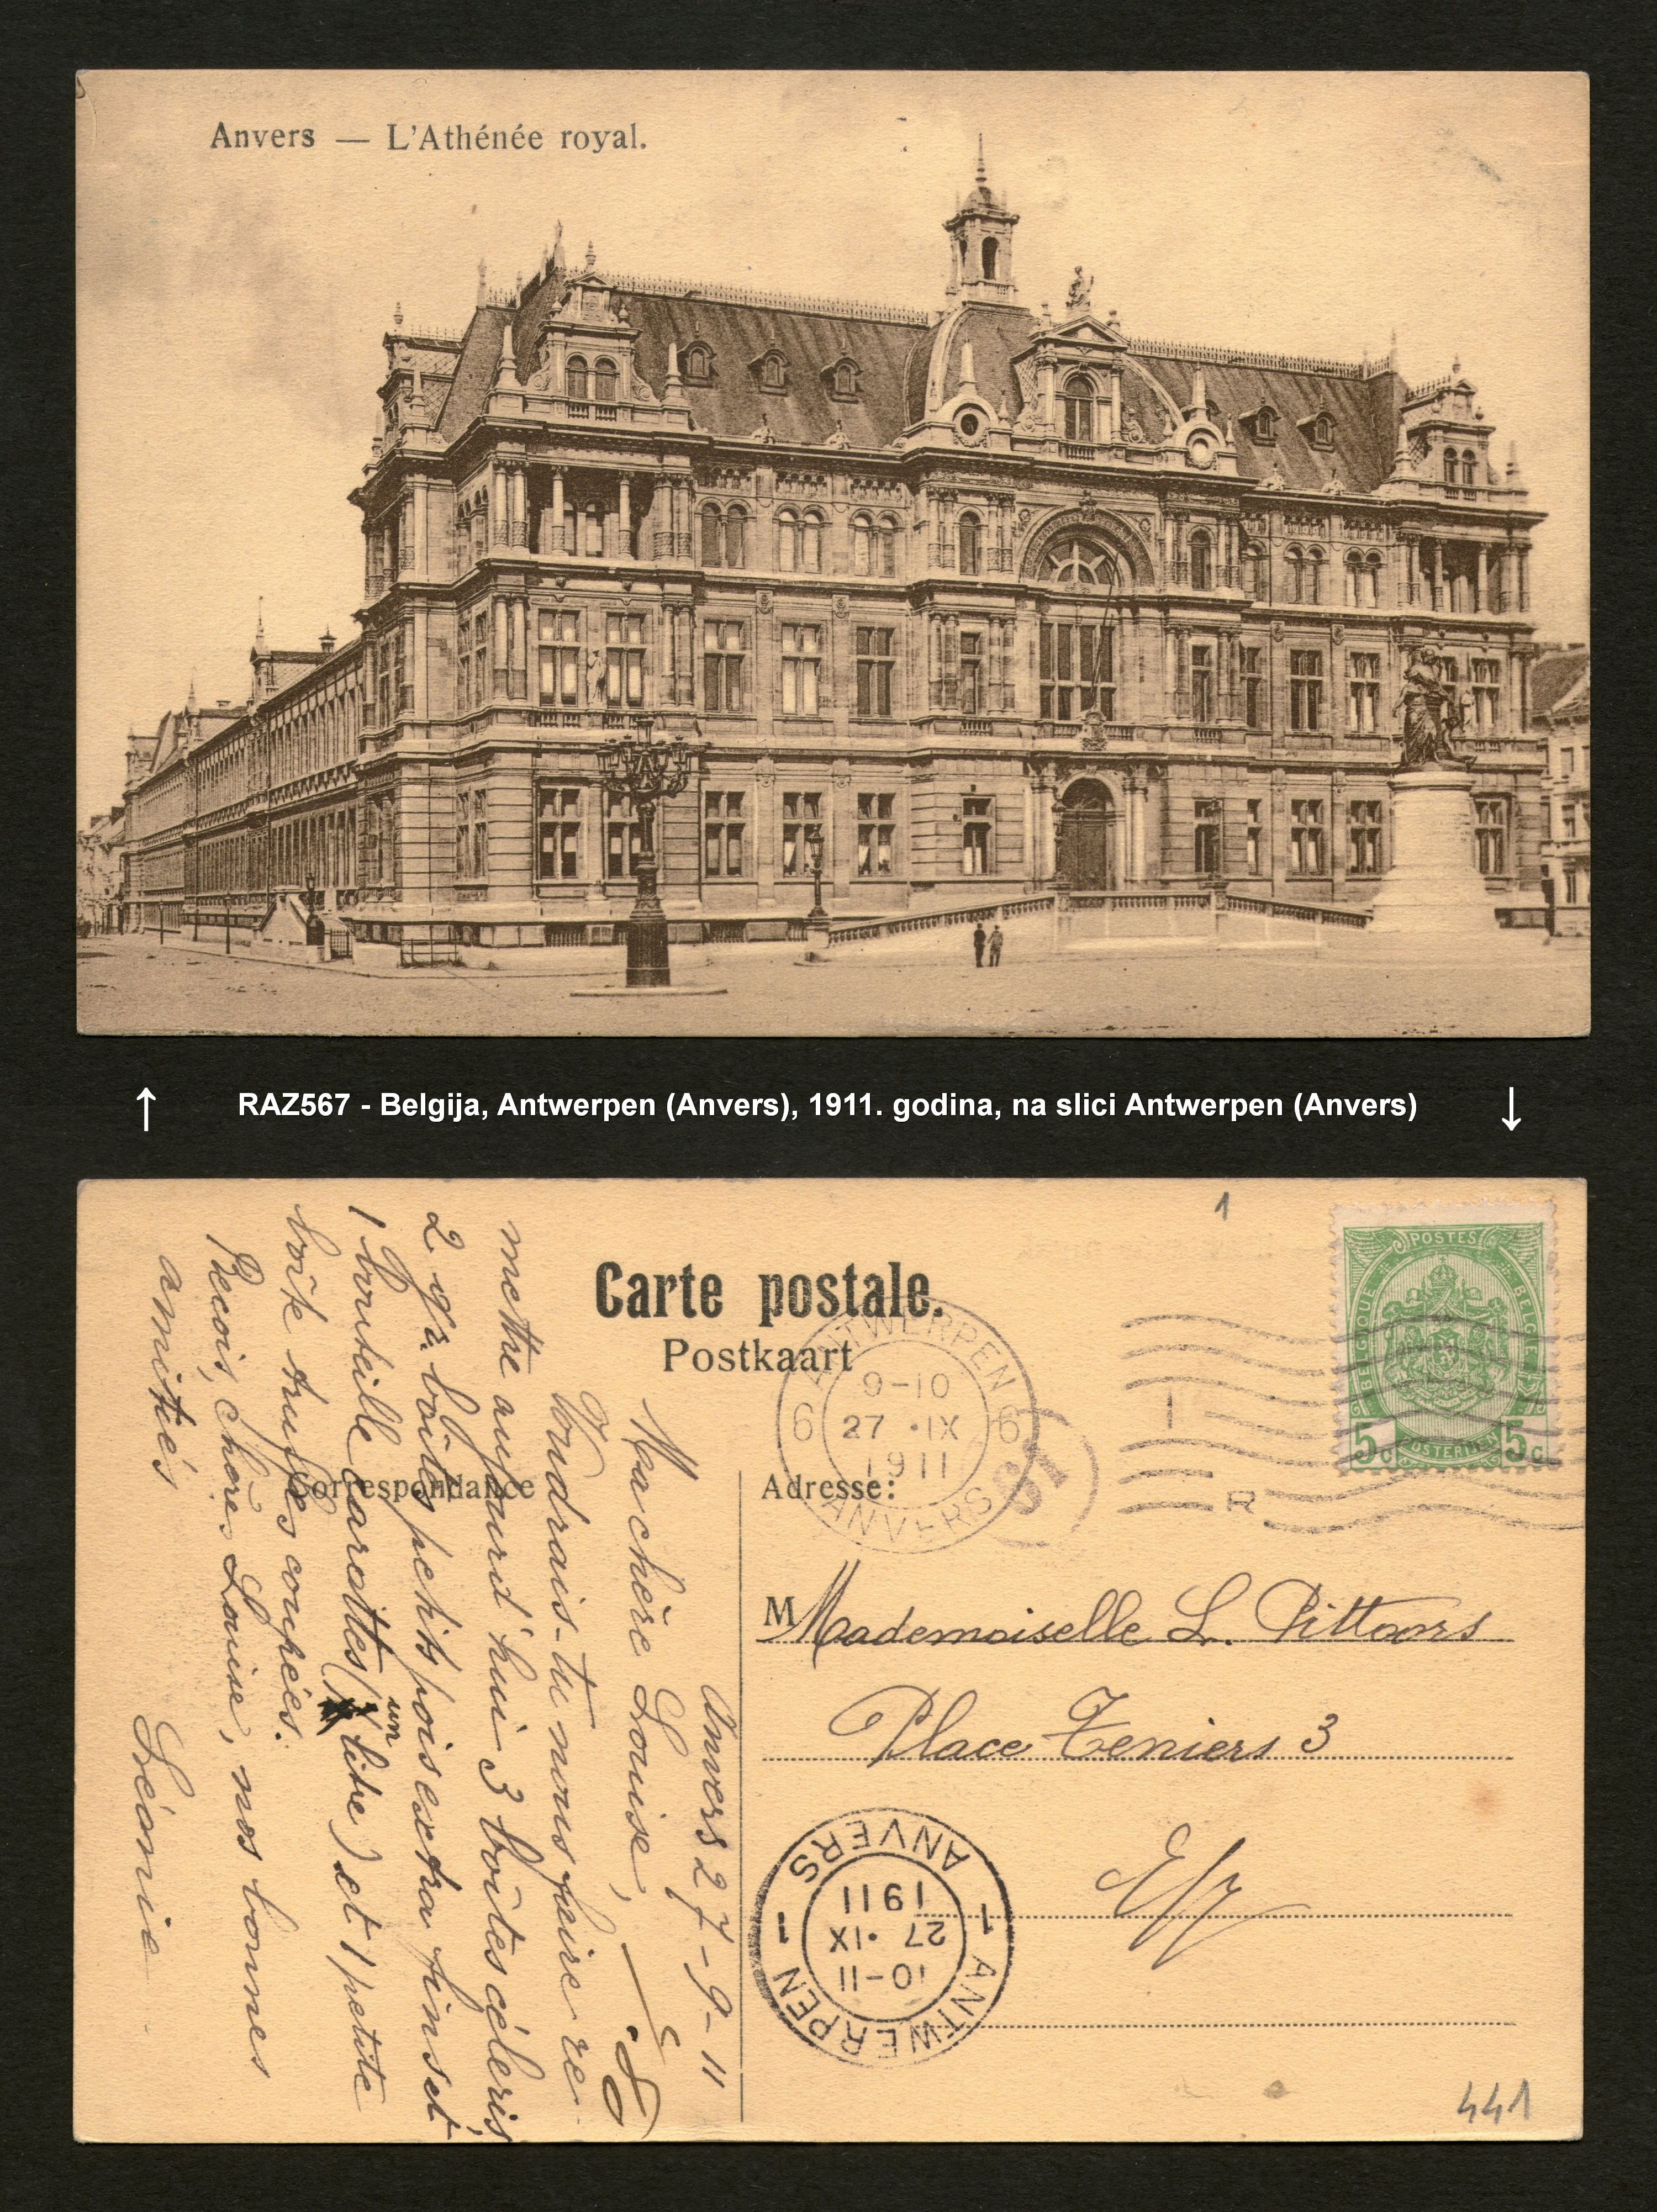 Anvers — L'Athénée royal.
↑ RAZ567 - Belgija, Antwerpen (Anvers), 1911. godina, na slici Antwerpen (Anvers) ↓
1
Carte postale.
Postkaart
Correspondance
Adresse:
POSTES
BELGIQUE
BELGIE
POSTERIJEN
5c 5c
ANTWERPEN
9-10
6 27 •IX 6
1911
ANVERS
61
R
M Mademoiselle L. Pittoors
Place Teniers 3
E/V
ANTWERPEN
10-11
1 27 •IX 1
1911
ANVERS
441
Anvers 27-9-11
Ma chère Louise,
Voudrais-tu nous faire re-
mettre aujourd'hui 3 boîtes céleris,
2 gr. boîtes petits pois extra fins et
1 bouteille carottes (un litre) et 1 petite
boîte truffes coupées.
Reçois, chère Louise, nos bonnes
amitiés
Léonie